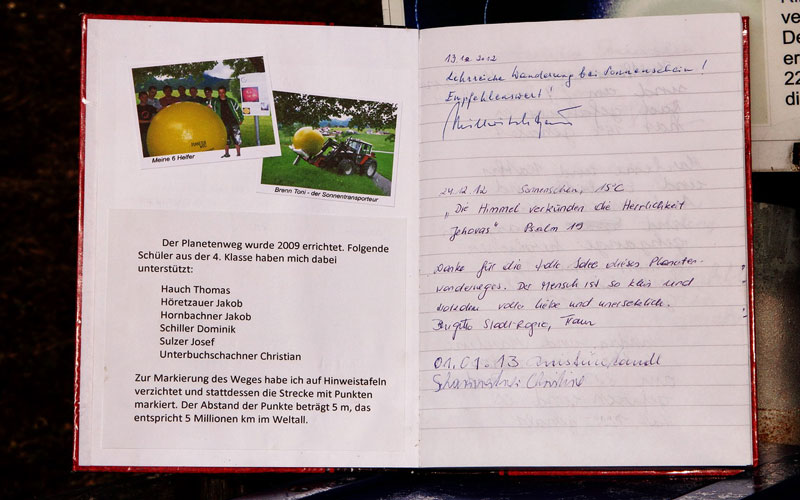 Meine 6 Helfer
Brenn Toni - der Sonnentransporteur
Der Planetenweg wurde 2009 errichtet. Folgende
Schüler aus der 4. Klasse haben mich dabei
unterstützt:
Hauch Thomas
Höretzauer Jakob
Hornbachner Jakob
Schiller Dominik
Sulzer Josef
Unterbuchschachner Christian
Zur Markierung des Weges habe ich auf Hinweistafeln
verzichtet und stattdessen die Strecke mit Punkten
markiert. Der Abstand der Punkte beträgt 5 m, das
entspricht 5 Millionen km im Weltall.
Lehrreiche Wanderung bei Sonnenschein!
Empfehlenswert!
24.12.12 Sonnenschein, 15°C
„Die Himmel verkünden die Herrlichkeit
Jehovas" Psalm 19
Danke für die tolle Idee dieses Planeten-
wanderweges. Der Mensch ist so klein und
trotzdem voller Liebe und unersetzlich.
Brigitte
01.01.13
Christine
De
22
di